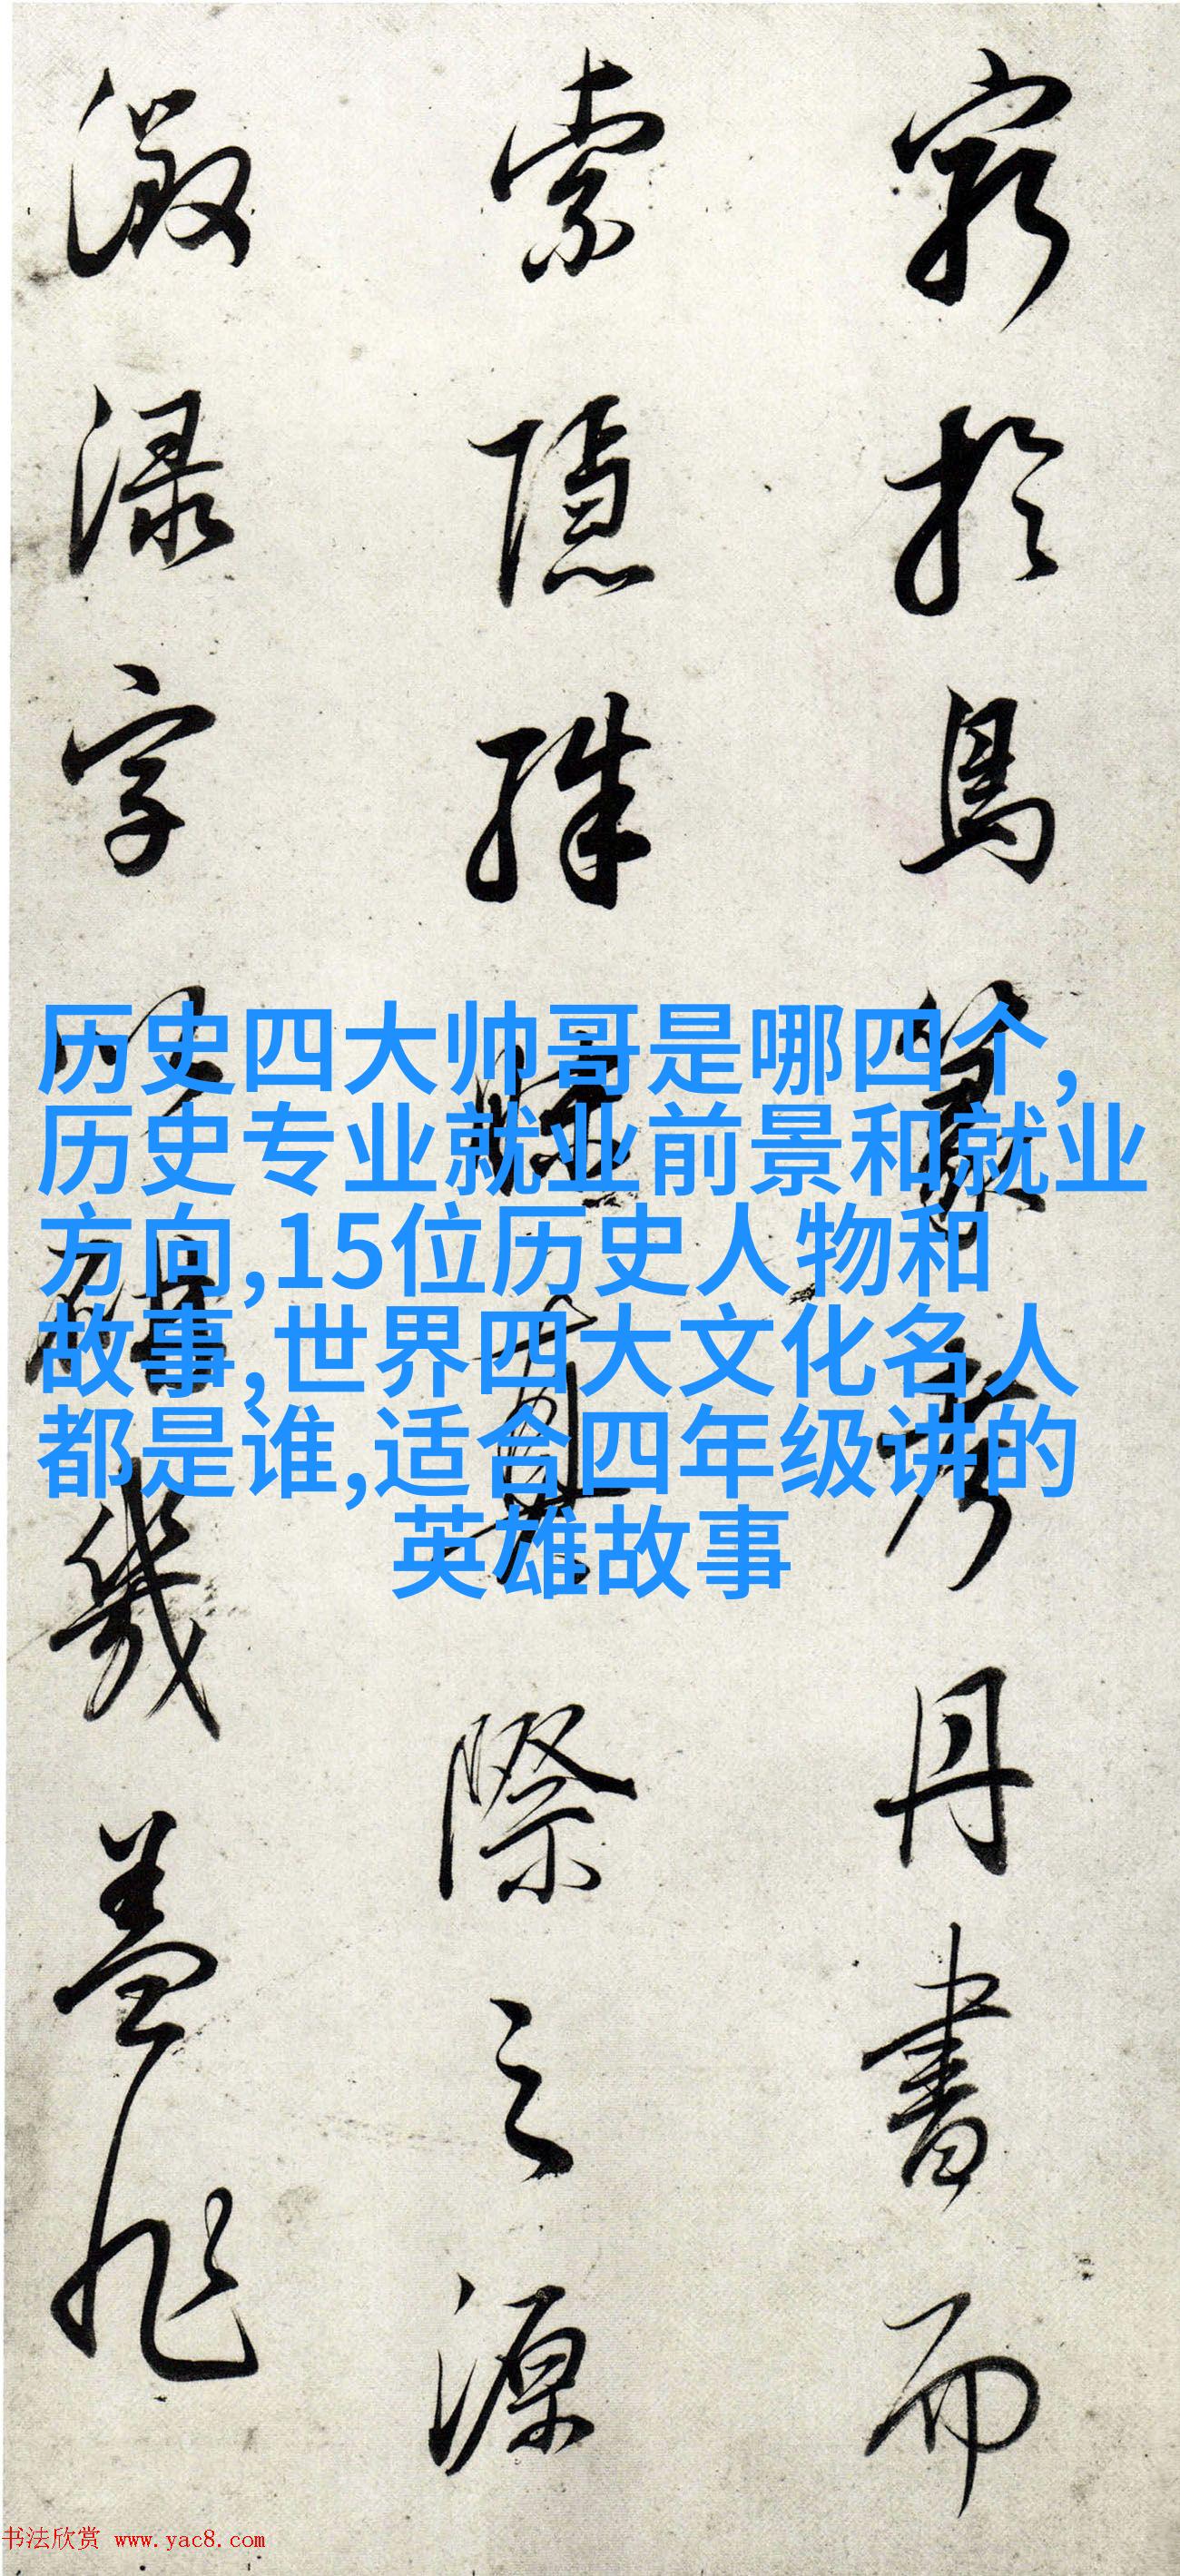 窮於鳥篆考丹書而
索隱殊真際之源
淥字以幾蓋非
历史四大帅哥是哪四个,
历史专业就业前景和就业
方向,15位历史人物和
故事,世界四大文化名人
都是谁,适合四年级讲的
英雄故事
书法欣赏 www.yac8.com